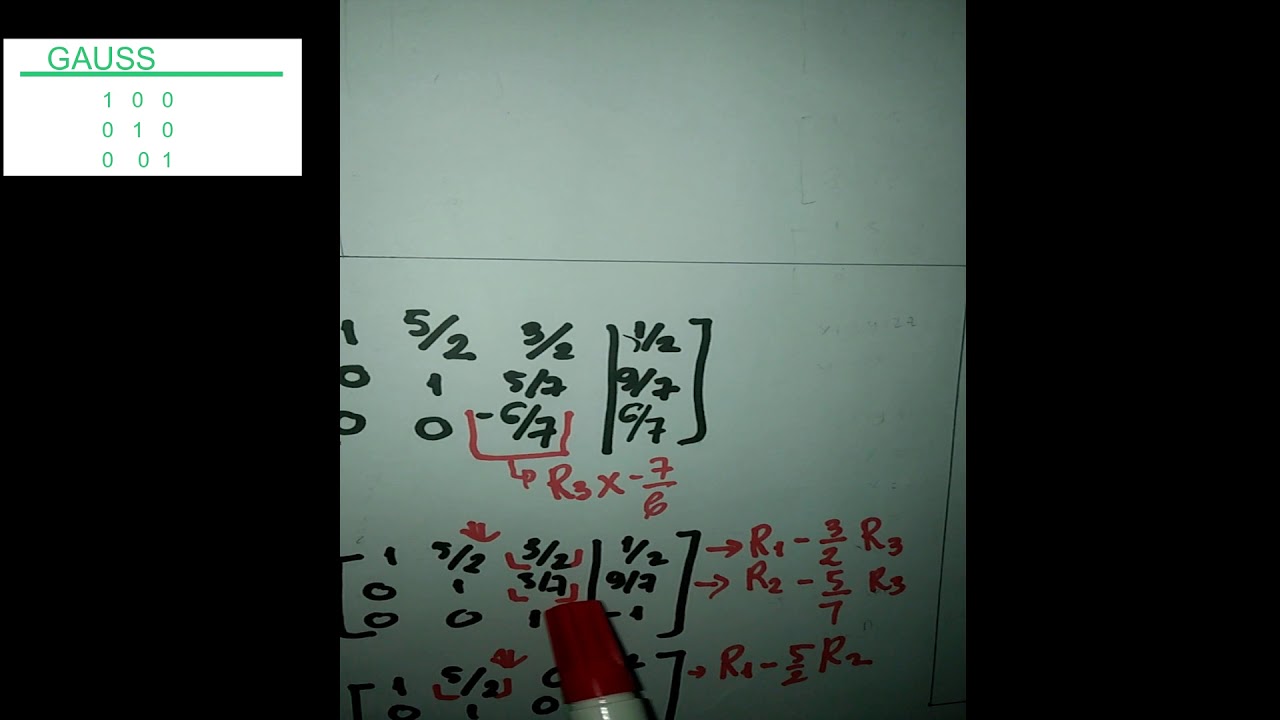 GAUSS
1 0 0
0 1 0
0 0 1
1 5/2 3/2 | 1/2 ]
0 1 5/7 | 9/7
0 0 -6/7 | 6/7
↳ R3 x - 7/6
[ 1 5/2 3/2 | 1/2 ] → R1 - 3/2 R3
0 1 5/7 | 9/7 → R2 - 5/7 R3
0 0 1 -1
[ 1 5/2 0 ] → R1 - 5/2 R2
0 1 0